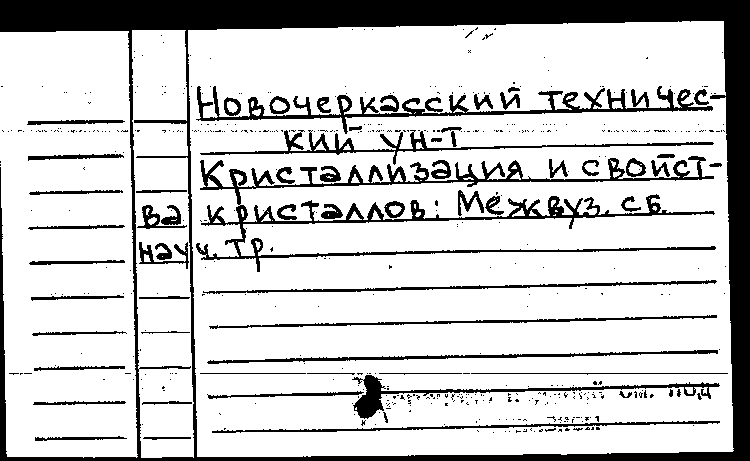 Новочеркасский техничес-
кий ун-т
Кристаллизация и свойст-
ва кристаллов: Межвуз. сб.
науч. тр.
см. под